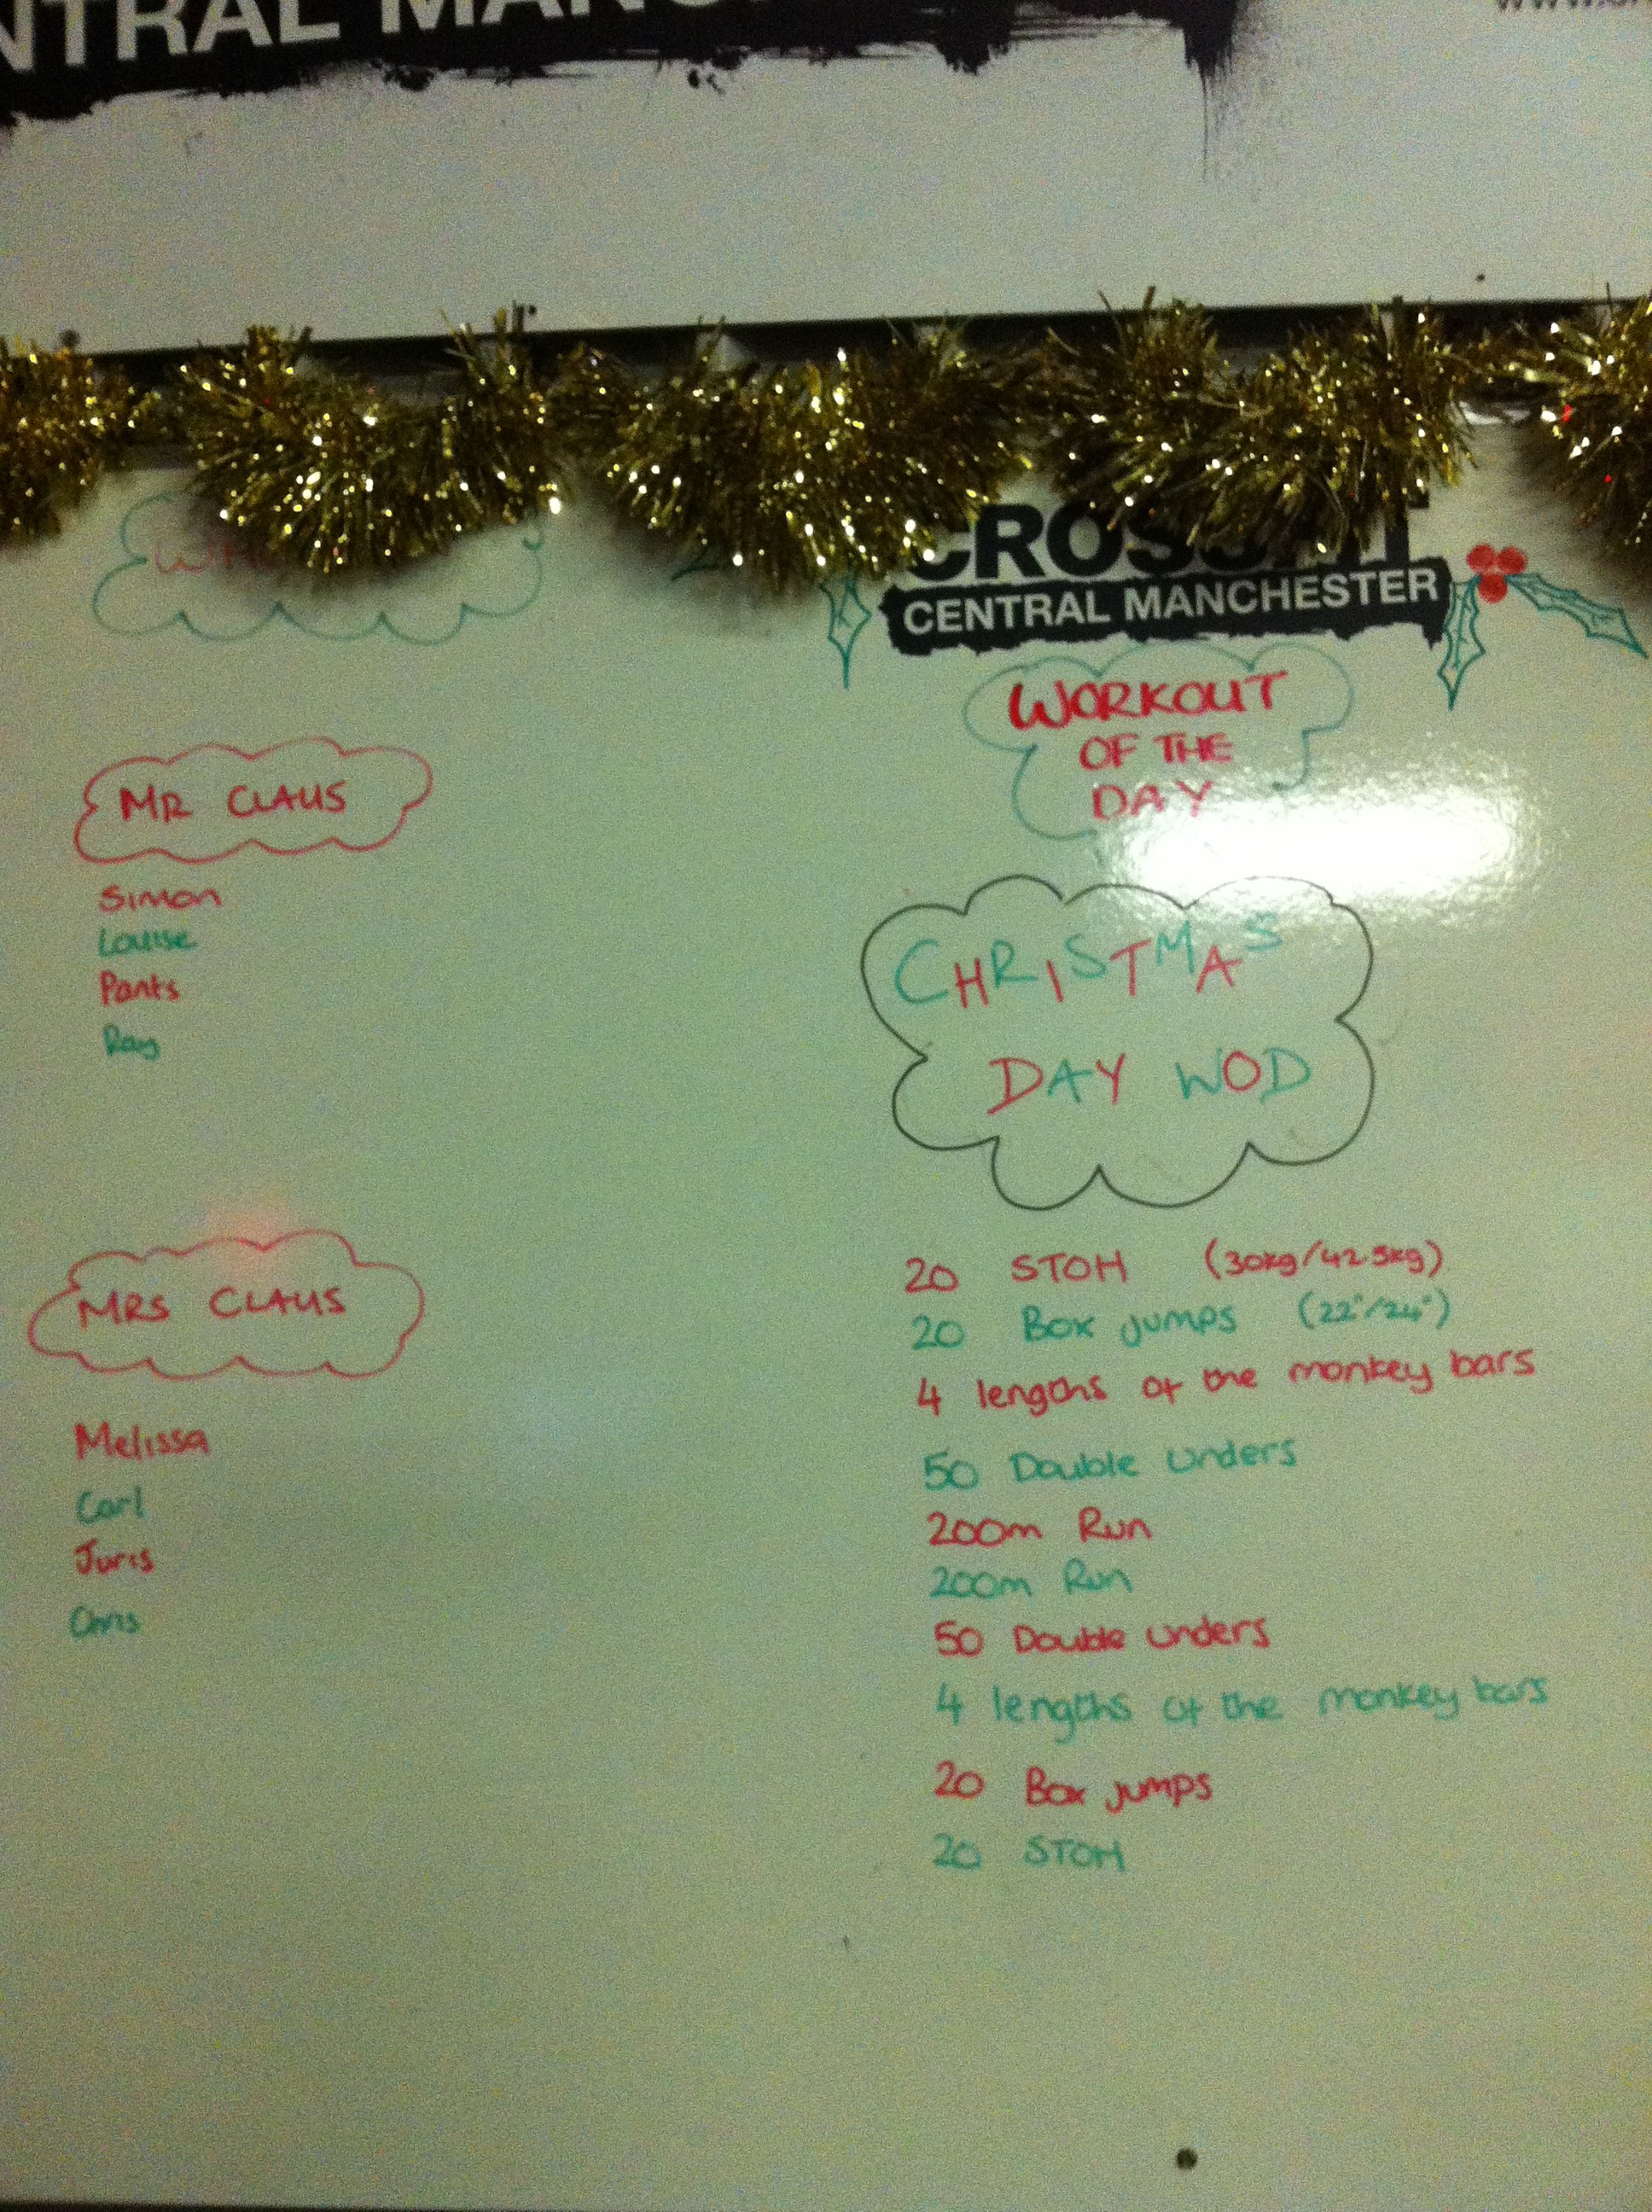 CENTRAL MANCHESTER
WORKOUT
OF THE
DAY
MR CLAUS
Simon
Louise
Pants
Ray
MRS CLAUS
Melissa
Carl
Juris
Chris
CHRISTMAS
DAY WOD
20 STOH (30kg/42.5kg)
20 Box jumps (22"/24")
4 lengths of the monkey bars
50 Double Unders
200m Run
200m Run
50 Double Unders
4 lengths of the monkey bars
20 Box jumps
20 STOH